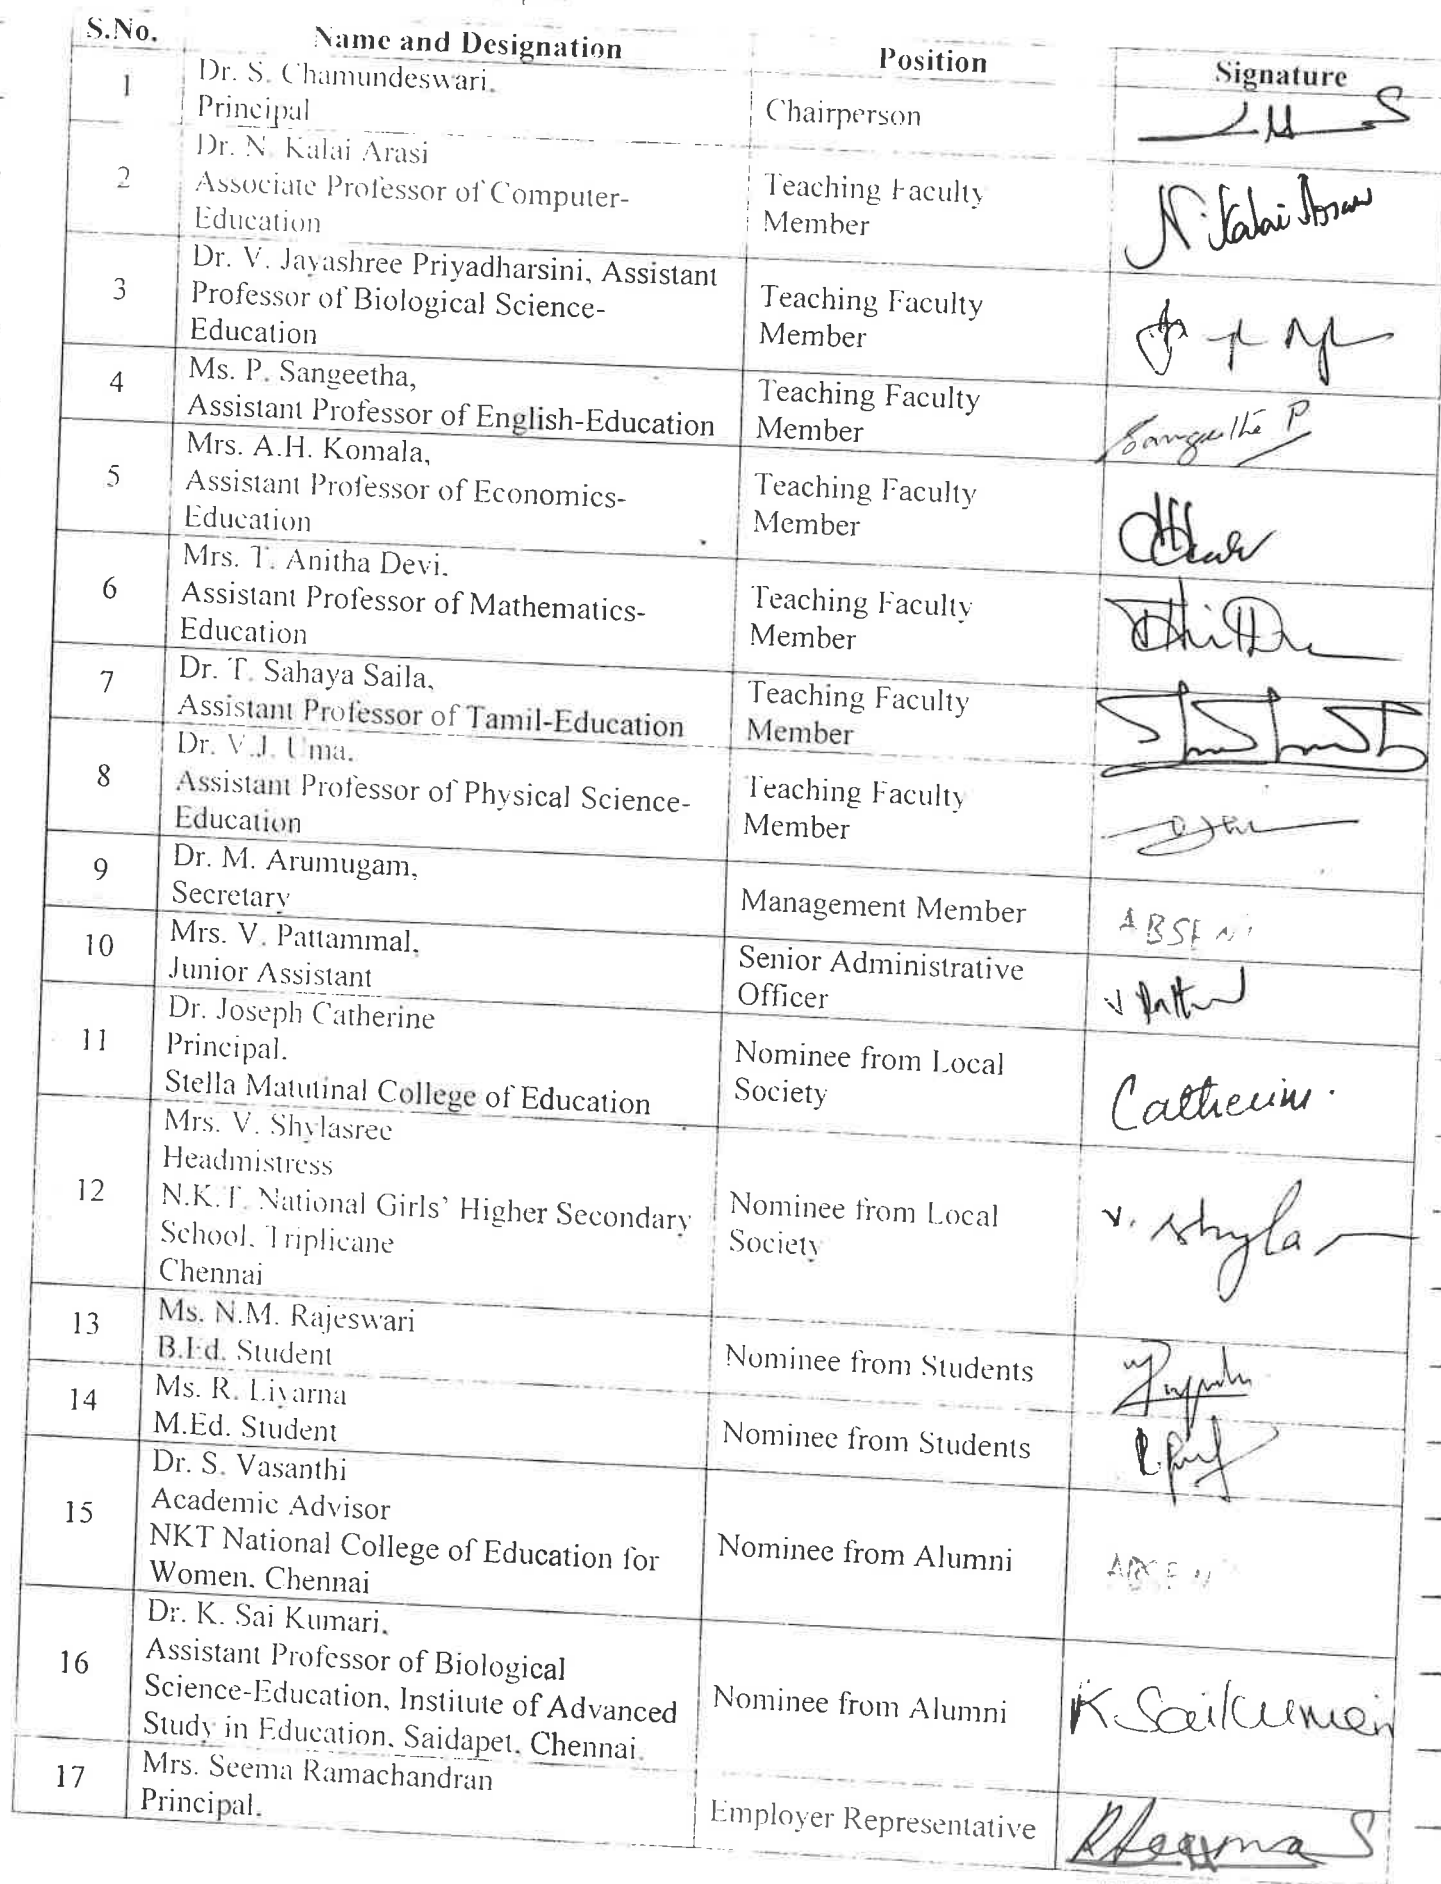 S.No. Name and Designation Position Signature
1 Dr. S. Chamundeswari,
Principal Chairperson
2 Dr. N. Kalai Arasi
Associate Professor of Computer-
Education Teaching Faculty
Member N. Kalai Arasi
3 Dr. V. Jayashree Priyadharsini, Assistant
Professor of Biological Science-
Education Teaching Faculty
Member
4 Ms. P. Sangeetha,
Assistant Professor of English-Education Teaching Faculty
Member Sangeetha P
5 Mrs. A.H. Komala,
Assistant Professor of Economics-
Education Teaching Faculty
Member
6 Mrs. T. Anitha Devi.
Assistant Professor of Mathematics-
Education Teaching Faculty
Member
7 Dr. T. Sahaya Saila,
Assistant Professor of Tamil-Education Teaching Faculty
Member
8 Dr. V.J. Uma.
Assistant Professor of Physical Science-
Education Teaching Faculty
Member
9 Dr. M. Arumugam,
Secretary Management Member ABSENT
10 Mrs. V. Pattammal,
Junior Assistant Senior Administrative
Officer
11 Dr. Joseph Catherine
Principal.
Stella Matutinal College of Education Nominee from Local
Society Catherine.
12 Mrs. V. Shylasree
Headmistress
N.K.T. National Girls' Higher Secondary
School, Triplicane
Chennai Nominee from Local
Society V. Shyla
13 Ms. N.M. Rajeswari
B.Ed. Student Nominee from Students
14 Ms. R. Liyarna
M.Ed. Student Nominee from Students
15 Dr. S. Vasanthi
Academic Advisor
NKT National College of Education for
Women, Chennai Nominee from Alumni ABSENT
16 Dr. K. Sai Kumari,
Assistant Professor of Biological
Science-Education, Institute of Advanced
Study in Education, Saidapet, Chennai. Nominee from Alumni K. Saikumari
17 Mrs. Seema Ramachandran
Principal. Employer Representative